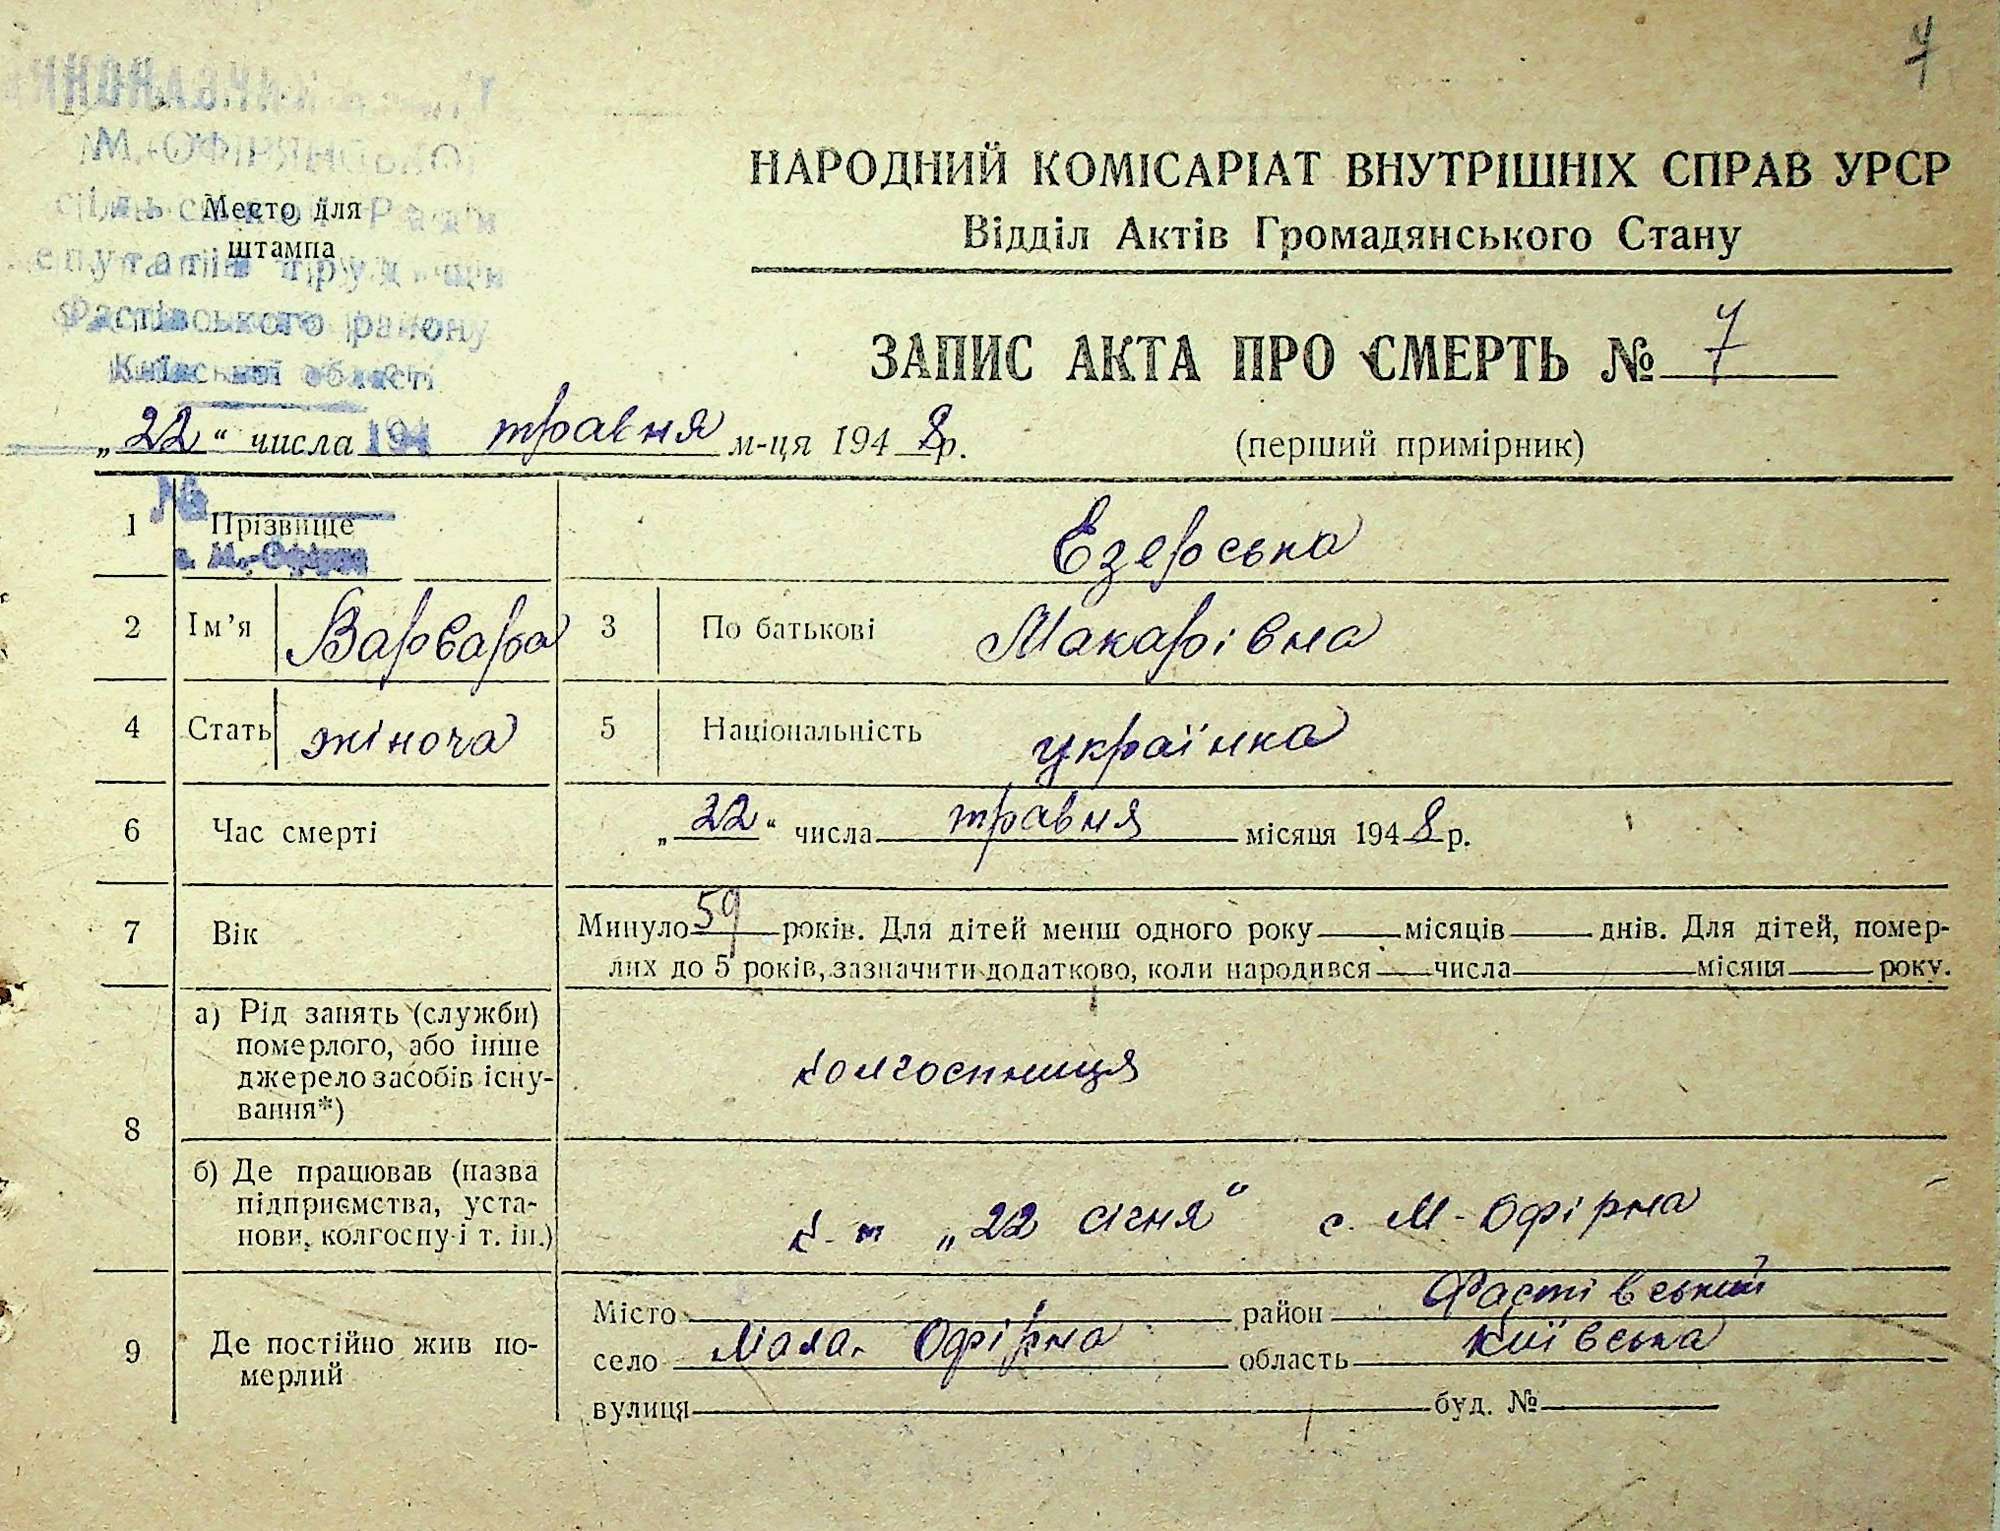 7
М.-ОФІРНСЬКОЇ
Место для
штампа
Фастівського району
Київської області
НАРОДНИЙ КОМІСАРІАТ ВНУТРІШНІХ СПРАВ УРСР
Відділ Актів Громадянського Стану
ЗАПИС АКТА ПРО СМЕРТЬ № 7
„22“ числа 194 травня м-ця 1948р.
(перший примірник)
№
1 Прізвище Езерська
с. М.-Офірна
2 Ім’я Варвара 3 По батькові Макарівна
4 Стать жіноча 5 Національність українка
6 Час смерті „22“ числа травня місяця 1948р.
7 Вік Минуло 59 років. Для дітей менш одного року місяців днів. Для дітей, помер-
лих до 5 років, зазначити додатково, коли народився числа місяця року.
8 а) Рід занять (служби)
померлого, або інше
джерело засобів існу-
вання*)
колгоспниця
б) Де працював (назва
підприємства, уста-
нови, колгоспу і т. ін.)
к-п „22 січня“ с. М-Офірна
9 Де постійно жив по-
мерлий
Місто район Фастівський
село Мала. Офірна область київська
вулиця буд. №